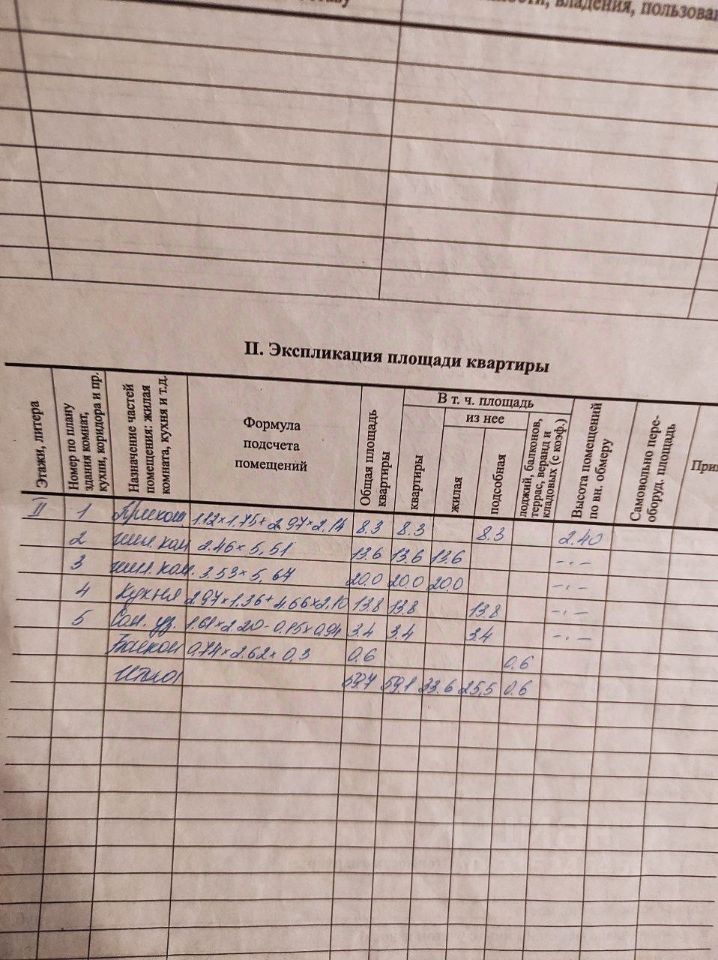 ности, владения, пользова
II. Экспликация площади квартиры
Этажи, литера
Номер по плану
здания комнат,
кухни, коридора и пр.
Назначение частей
помещения: жилая
комната, кухня и т.д.
Формула
подсчета
помещений
Общая площадь
квартиры
В т. ч. площадь
квартиры
из нее
жилая
подсобная
лоджий, балконов,
террас, веранд и
кладовых (с коэф.)
Высота помещений
по вн. обмеру
Самовольно пере-
оборуд. площадь
При
II 1 1.75 + 2.97×2.14 8.3 8.3 8.3 2.40
2 жил. ком 2.46×5,51 13.6 13.6 13.6 -·-
3 жил. ком. 3.53×5,67 20.0 20.0 20.0 -·-
4 Кухня 2.97×1.36+4.66×2.10 13.8 13.8 13.8 -·-
5 Сан. уз. 1.61×2.20-0.15×0.94 3.4 3.4 3.4 -·-
Балкон 0,74×2.62×0,3 0.6 0.6
Итого 59.7 59.1 33.6 25.5 0.6